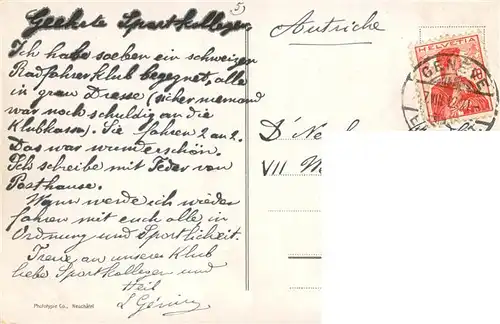 5)
Geehrte Sportkollegen,
Ich habe soeben ein schweizer
Radfahrerklub begegnet, alle
in grau Dresse (sicher niemand
war noch schuldig an die
Klubkassa). Sie fahren 2 an 2.
Das war wunderschön.
Ich schreibe mit Feder von
Posthause.
Wann werde ich wieder
fahren mit euch alle, in
Ordnung und Sportlichkeit.
Treue an unseres Klub
liebe Sportkollegen und
Heil
Phototypie Co., Neuchâtel
Autriche
HELVETIA
10
GENÈVE
Dr
VII